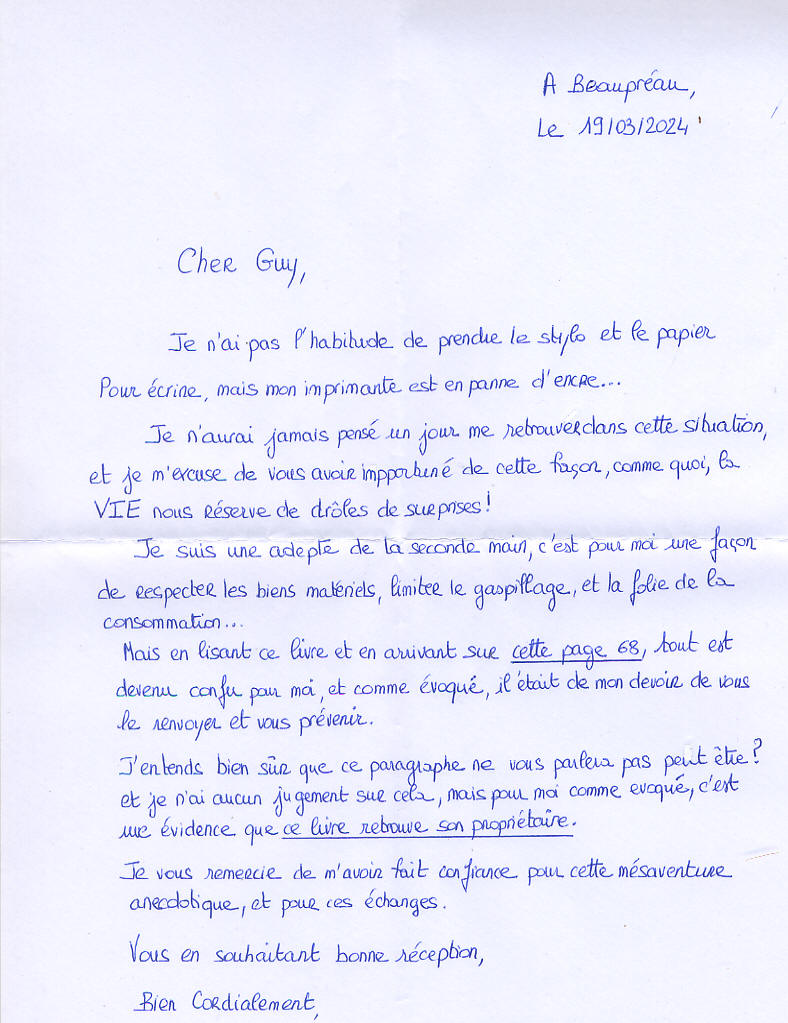 A Beaupréau,
Le 19/03/2024
Cher Guy,
Je n'ai pas l'habitude de prendre le stylo et le papier
Pour écrire, mais mon imprimante est en panne d'encre...
Je n'aurai jamais pensé un jour me retrouver dans cette situation,
et je m'excuse de vous avoir impportuné de cette façon, comme quoi, la
VIE nous réserve de drôles de surprises!
Je suis une adepte de la seconde main, c'est pour moi une façon
de respecter les biens matériels, limiter le gaspillage, et la folie de la
consommation...
Mais en lisant ce livre et en arrivant sur cette page 68, tout est
devenu confu pour moi, et comme évoqué, il était de mon devoir de vous
le renvoyer et vous prévenir.
J'entends bien sûr que ce paragraphe ne vous parlera pas peut être?
et je n'ai aucun jugement sur cela, mais pour moi comme evoqué, c'est
une évidence que ce livre retrouve son propriétaire.
Je vous remercie de m'avoir fait confiance pour cette mésaventure
anecdotique, et pour ces échanges.
Vous en souhaitant bonne réception,
Bien Cordialement,